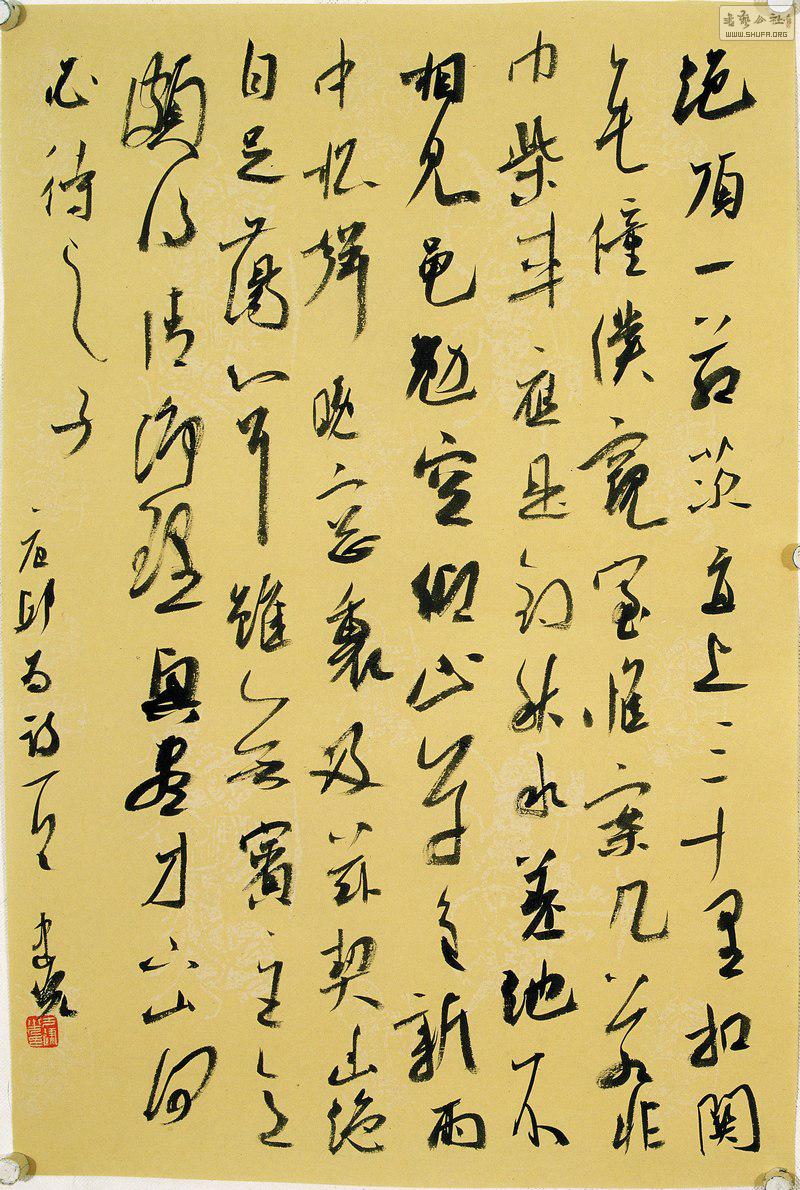 绝顶一茅茨直上三十里扣関
无僮僕窥室惟案几若非
巾柴車應是钓秋水差池不
相見黾勉空仰止草色新雨
中松聲晚窓裏及兹契幽绝
自足蕩心耳雖无賓主意
頗得清净理興盡方下山何
必待之子
唐邱为诗一首
書藝公社
WWW.SHUFA.ORG